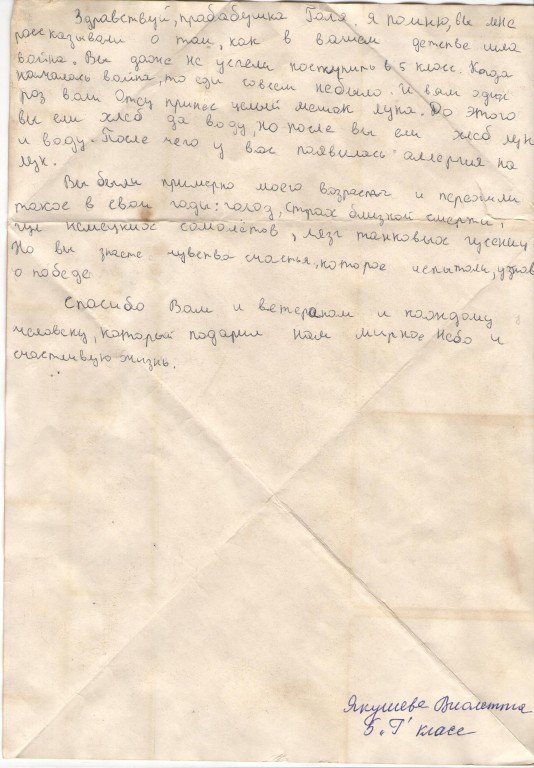 Здравствуй, прабабушка Галя. Я помню, вы мне
рассказывали о том, как в вашем детстве шла
война. Вы даже не успели поступить в 5 класс. Когда
началась война, то еды совсем небыло. И вам один
раз вам Отец принес целый мешок лука. До этого
вы ели хлеб да воду, но после вы ели хлеб лук
и воду. После чего у вас появилась аллергия на
лук.
Вы были примерно моего возраста и пережили
такое в свои годы: голод, страх близкой смерти,
гул немецких самолётов, лязг танковых гусениц
Но вы знаете чувство счастья, которое испытали, узнав
о победе
Спасибо Вам и ветераном и каждому
человеку, который подарил нам мирное небо и
счастливую жизнь.
Якушева Виолетта
5 „Г" класс